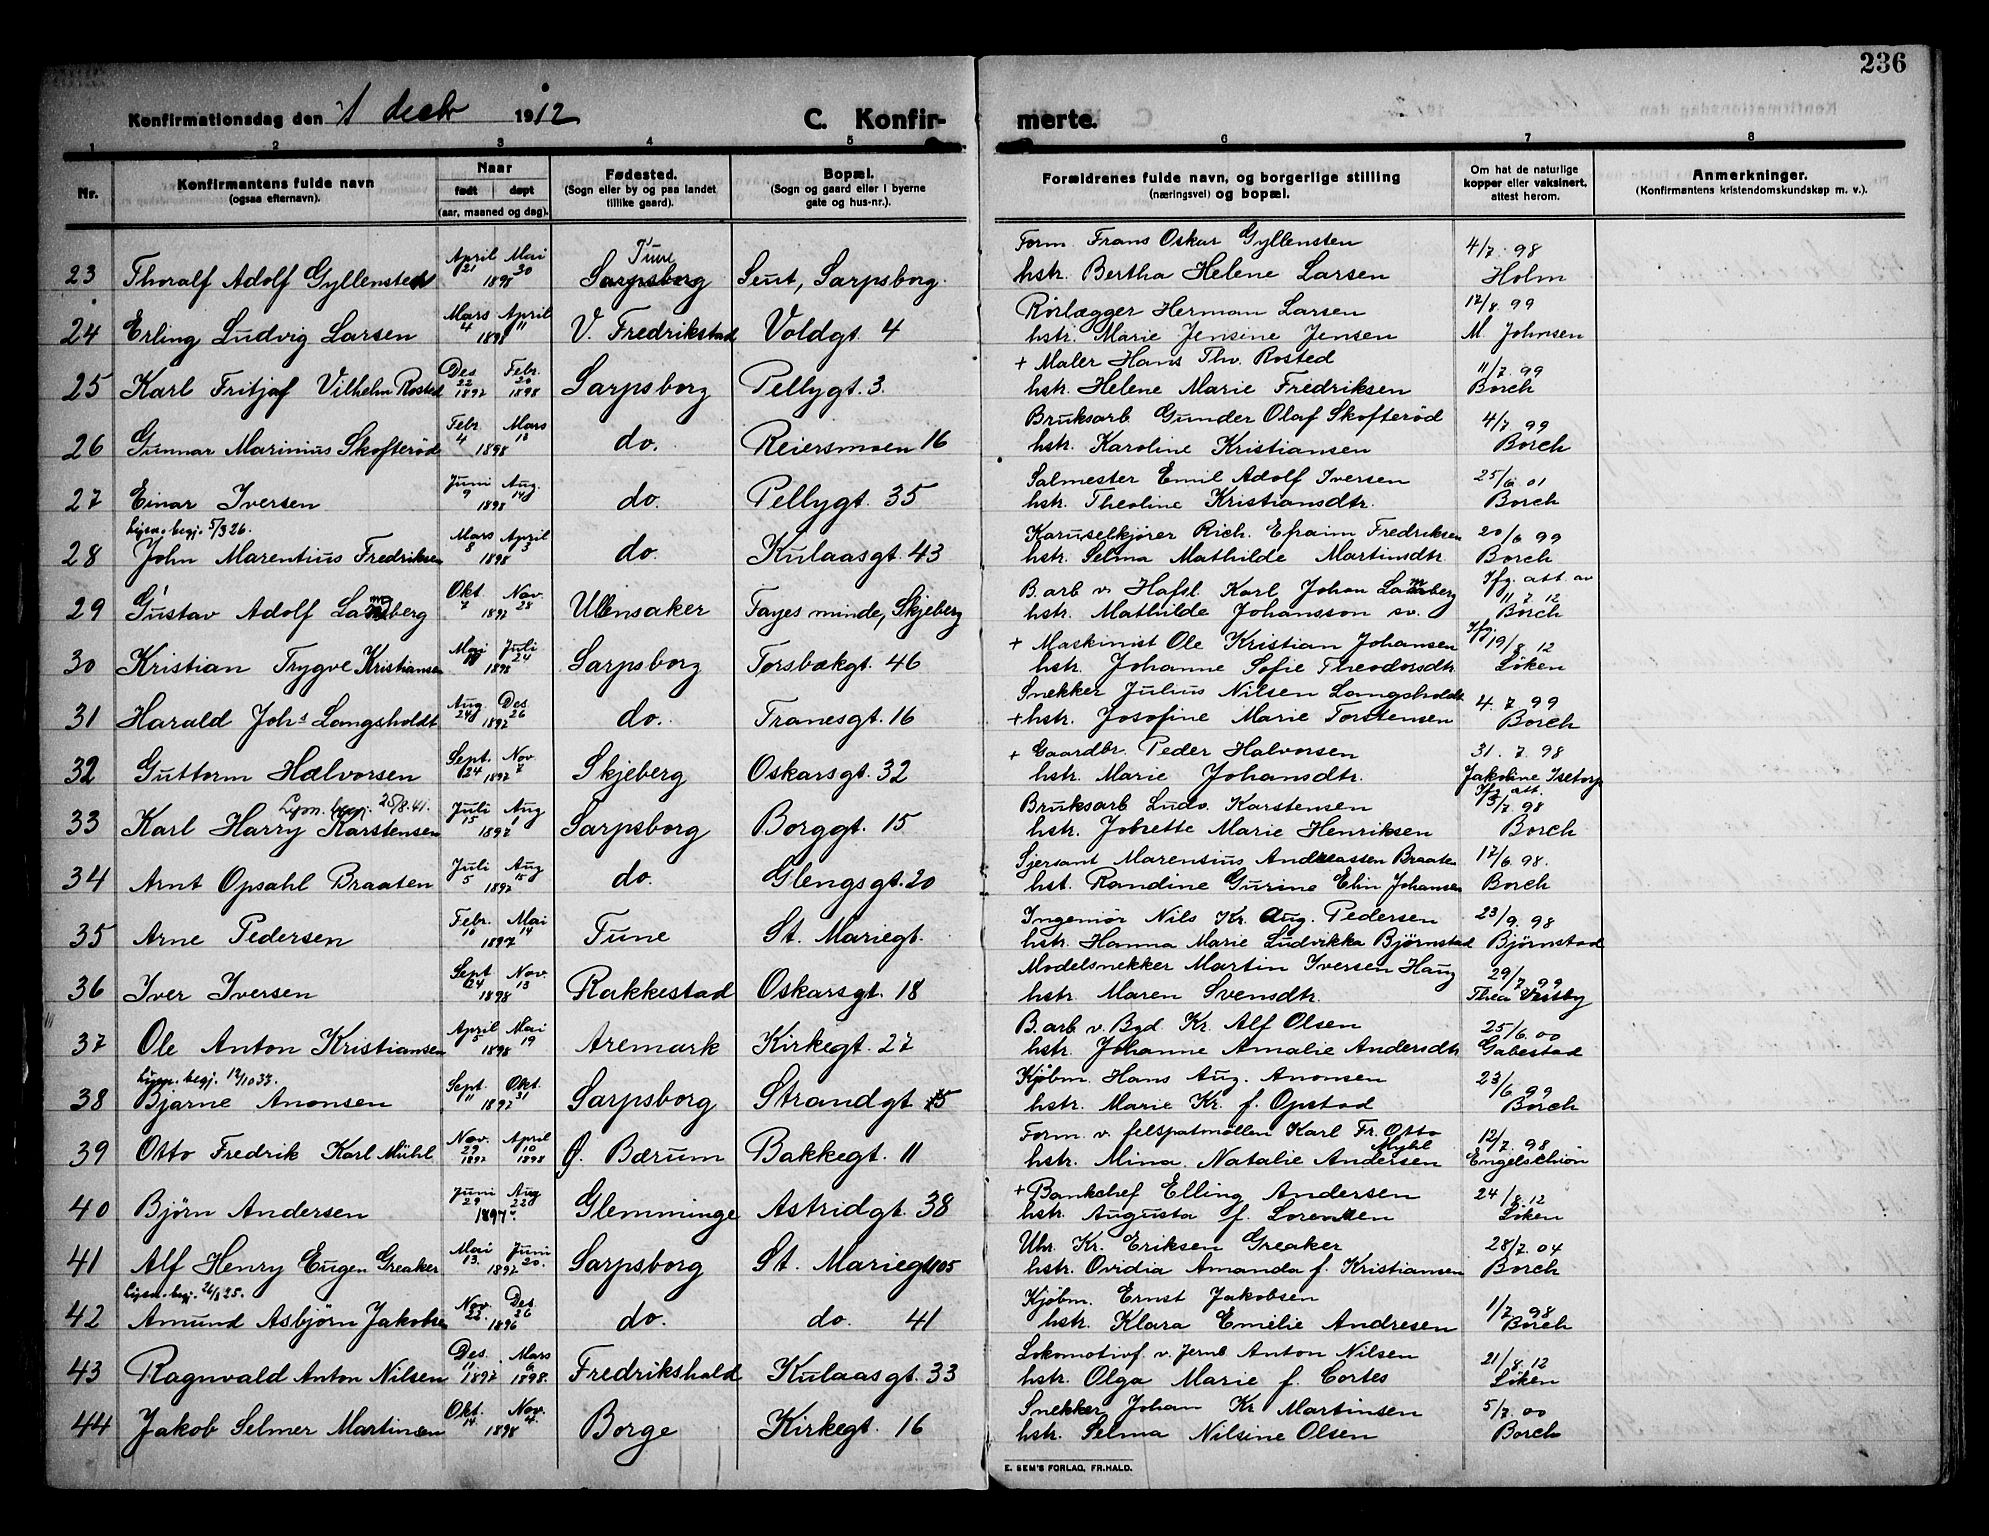 236
Konfirmationsdag den 1 decbr 1912 C. Konfirmerte.
1 2 3 4 5 6 7 8
Nr. Konfirmantens fulde navn (ogsaa efternavn). Naar født døpt (aar, maaned og dag). Fødested. (Sogn eller by og paa landet tillike gaard). Bopæl. (Sogn og gaard eller i byerne gate og hus-nr.). Forældrenes fulde navn, og borgerlige stilling (næringsvei) og bopæl. Om hat de naturlige kopper eller vaksinert, attest herom. Anmerkninger. (Konfirmantens kristendomskundskap m. v.).
Tune Form. Frans Oskar Gyllensten 4/7 98
23 Thoralf Adolf Gyllensten April 21 Mai 30 1898 Sarpsborg Seut, Sarpsborg. hstr. Bertha Helene Larsen Holm
Rørlægger Herman Larsen 17/8 99
24 Erling Ludvig Larsen Mars 4 April 11 1898 V. Fredrikstad Voldgt. 4 hstr. Marie Jensine Jensen M. Johnsen
+ Maler Hans Thv. Rosted 11/7 99
25 Karl Fritjof Vilhelm Rosted Des 22 1897 Febr. 20 1898 Sarpsborg Pellygt. 3. hstr. Helene Marie Fredriksen Borch
Bruksarb. Gunder Olaf Skofterød 4/7 99
26 Gunnar Marinius Skofterød Febr. 4 Mars 18 1898 do. Reiersmoen 16 hstr. Karoline Kristiansen Borch
Salmester Emil Adolf Iversen 25/6 01
27 Einar Iversen Juni 9 Aug. 14 1898 do. Pellygt. 35 hstr. Theoline Kristiansdtr. Borch
Lysn. begj. 5/3 26. Karuselkjører Rich. Efraim Fredriksen 20/6 99
28 John Marentius Fredriksen Mars 8 April 3 1898 do. Kulaasgt. 43 hstr. Selma Mathilde Martinsdtr. Borch
B. arb v. Hafsl. Karl Johan Lamberg Ifg. att av 11 7 12
29 Gustav Adolf Lamberg Okt 7 Nov. 28 1897 Ullensaker Fayes minde, Skjeberg hstr. Mathilde Johansson sv. Borch
+ Maskinist Ole Kristian Johansen Ifg. 19/8 12
30 Kristian Trygve Kristiansen Mai Juli 24 1898 Sarpsborg Torsbækgt. 46 hstr. Johanne Sofie Theodorsdtr. Løken
Snekker Julius Nilsen Langsholdt 4. 7 99
31 Harald Johs Langsholdt Aug. 24 Des. 26 1897 do. Tranesgt. 16 + hstr. Josofine Marie Torstensen Borch
+ Gaardbr. Peder Halvorsen 31. 7. 98
32 Guttorm Halvorsen Sept. 24 Nov. 7 1897 Skjeberg Oskarsgt. 32 hstr. Marie Johansdtr. Jakoline Isetorp
Lysn. begj. 25/8.41. Bruksarb Ludv. Karstensen Ifg att. 15/7 98
33 Karl Harry Karstensen Juli 15 Aug 1 1897 Sarpsborg Borggt. 15 hstr. Josette Marie Henriksen Borch
Sjersant Marensius Andreassen Braaten 17/6 98.
34 Arnt Opsahl Braaten Juli 5 Aug 15 1897 do. Glengsgt. 20 hst. Randine Gurine Elin Johansen Borch
Ingeniør Nils Kr. Aug. Pedersen 23/9. 98
35 Arne Pedersen Febr. 10 Mai 14 1897 Tune St. Mariegt. hstr. Hanna Marie Ludvikka Bjørnstad Bjørnstad
Modelsnekker Martin Iversen Haug 29/7 99
36 Iver Iversen Sept 24 Nov. 13 1898 Rakkestad Oskarsgt. 18 hstr. Maren Svensdtr. Thea Vestby
B. arb v. Bgd. Kr. Alf Olsen 25/6 00
37 Ole Anton Kristiansen April 5 Mai 19 1898 Aremark Kirkegt. 27 hstr. Johanne Amalie Andersdtr Gabestad
Lysn. begj. 12/10 37. Kjøbm. Hans Aug. Anonsen 23/6 99
38 Bjarne Anonsen Sept. 11 Okt. 31 1897 Sarpsborg Strandgt 5 hstr. Marie Kr. f. Opstad Borch
Form. v. felspatmøllen Karl Fr. Otto Myhl 12/7 98
39 Otto Fredrik Karl Mühl Nov. 29 1897 April 10 1898 Ø. Bærum Bakkegt. 11 hstr. Mina Natalie Andersen Engelschiøn
+ Bankchef Elling Andersen 24/8 12
40 Bjørn Andersen Juni 29 Aug 22 1897 Glemminge Astridgt. 38 hstr. Augusta f. Lorentzen Løken
Uhr. Kr. Eriksen Greaker 28/7. 04
41 Alf Henry Eugen Greaker Mai 13. Juni 20. 1897 Sarpsborg St. Mariegt 105 hstr. Ovidia Amanda f. Kristiansen Borch
Lysn. begj. 26/8 25. Kjøbm. Ernst Jakobsen 1/7 98
42 Amund Asbjørn Jakobsen Nov. 22. Des. 26 1896 do. do. 41 hstr. Klara Emilie Andresen Borch
Lokomotivf. v. Jernb Anton Nilsen 21/8 12
43 Ragnvald Anton Nilsen Des. 11 1897 Mars 6 1898. Fredrikshald Kulaasgt. 33 hstr. Olga Marie f. Cortes Løken
Snekker Johan Kr. Martinsen 5/7. 00
44 Jakob Selmer Martinsen Okt. 14 Nov. 4. 1898 Borge Kirkegt. 16 hstr. Selma Nilsine Olsen Borch
E. SEM'S FORLAG, FR.HALD.